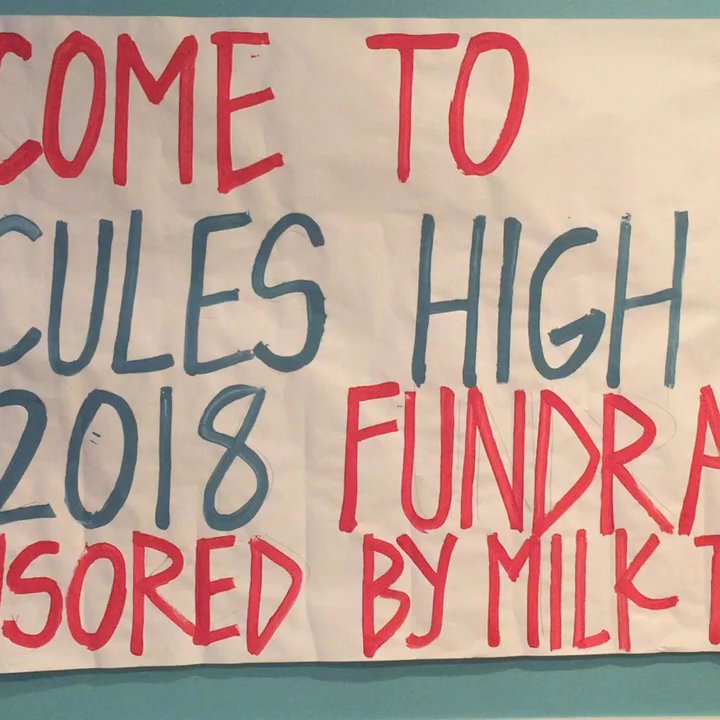 COME TO
CULES HIGH
2018 FUNDRA
SORED BY MILK T